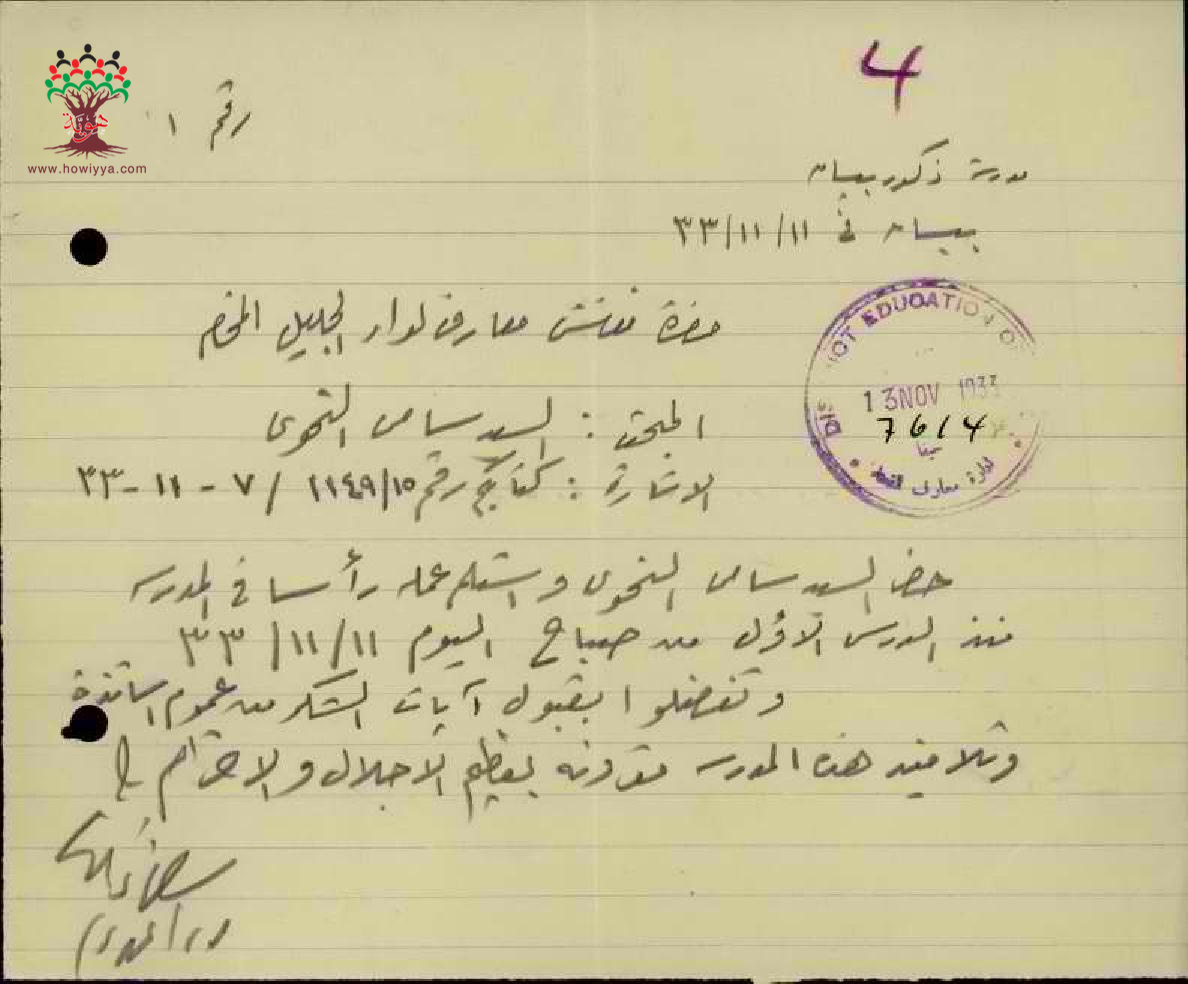 4
هوية
www.howiyya.com
رقم ١
مدرسة ذكور بيسان
بيسان في ١١/١١/٣٣
حضرة مفتش معارف لواء الجليل المحترم
DISTRICT EDUCATION OF
13 NOV 1933
7614
ادارة معارف
المبحث : السيد سامي النحوي
الاشارة : كتابكم رقم ١١٤٩/١٥ / ٧ - ١١ - ٣٣
حضر السيد سامي النحوي واستلم عمله رأسا في المدرسه
منذ الدرس الأول من صباح اليوم ١١/١١/٣٣
وتفضلوا بقبول آيات الشكر من عموم اساتذة
وتلاميذ هذه المدرسه مقرونه بعظيم الاجلال والاحترام
مدير المدرسة